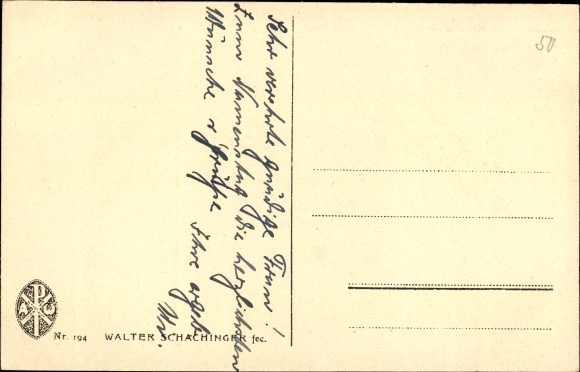 Sehr verehrte gnädige Frau!
Zum Namenstag die herzlichsten
Wünsche & Grüße Ihre ergeb.
50
Nr. 194 WALTER SCHACHINGER fec.